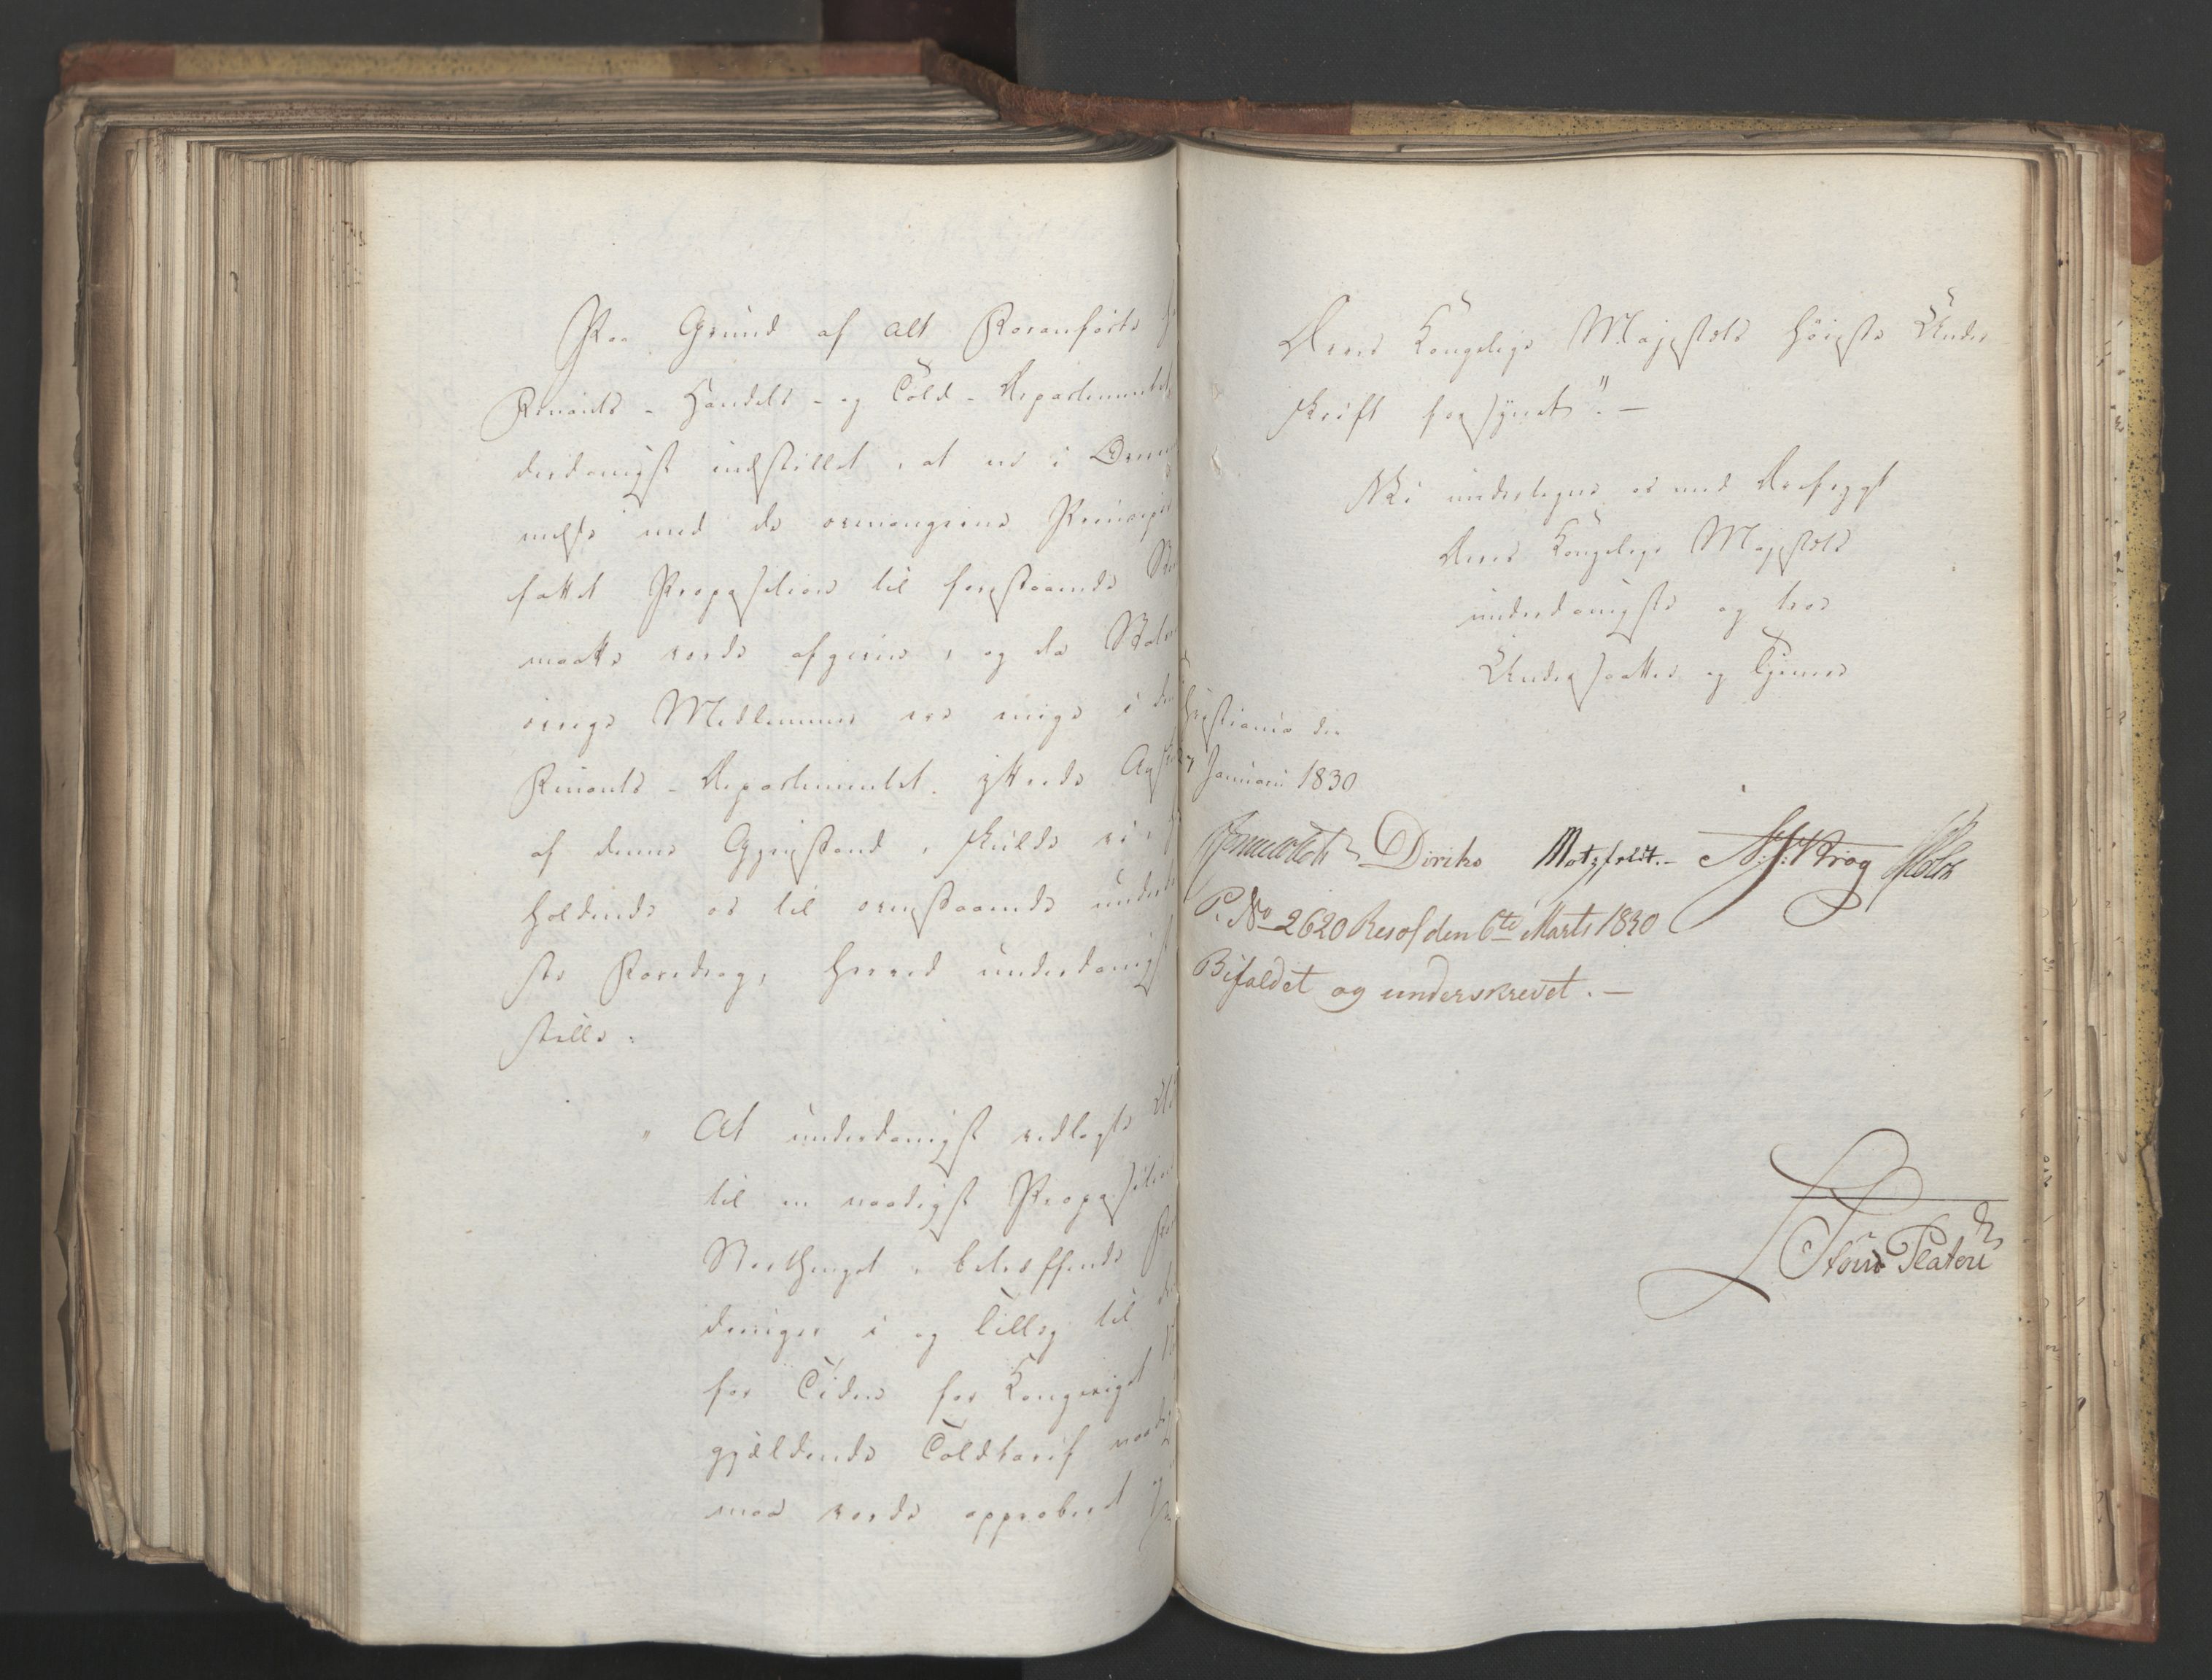 Paa Grund af alt Foranførte
Finants- Handels- og Told-Departementet
derdanigst indstillet, at en i Overeens
melse med de ovenangivne Principer
fattet Proposition til forestaaende Stor
maatte vorde afgiven, og da Stats
øvrige Medlemmer ere enige i den
Finants-Departementet yttrede Anskuelse
af denne Gjenstand, skulde vi,
holdende os til ovenstaaende underdanig
ste Foredrag, herved underdanigst
stille:
" At underdanigst vedlagte Ud
til en naadigst Proposition
Storthinget, betreffende
dringer i og Tillæg til den
for Tiden for Kongeriget
gjældende Toldtarif naadigst
maa vorde approberet og
Deres Kongelige Majestæts høieste Under
skrift forsynet". —
Vi undertegne os med Ærefrygt
Deres Kongelige Majestæts
underdanigste og troe
Undersaatter og Tjenere
Christiania den
Januari 1830
Diriks Motzfeldt. – Krog Holst
P. No 2620 Resol den 6te Marts 1830
Bifaldet og underskrevet. —
Platou